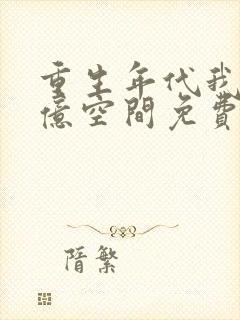 重生年代我
億空間免費
隋繁